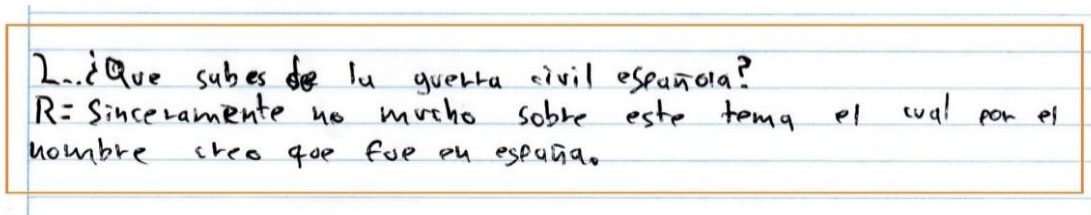 2..¿Que sabes de la guerra civil española?
R= Sinceramente no mucho sobre este tema el cual por el
nombre creo que fue en españa.